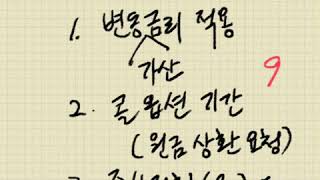 1. 변동금리 적용
가산
9
2. 콜옵션 기간
(원금 상환 요청)